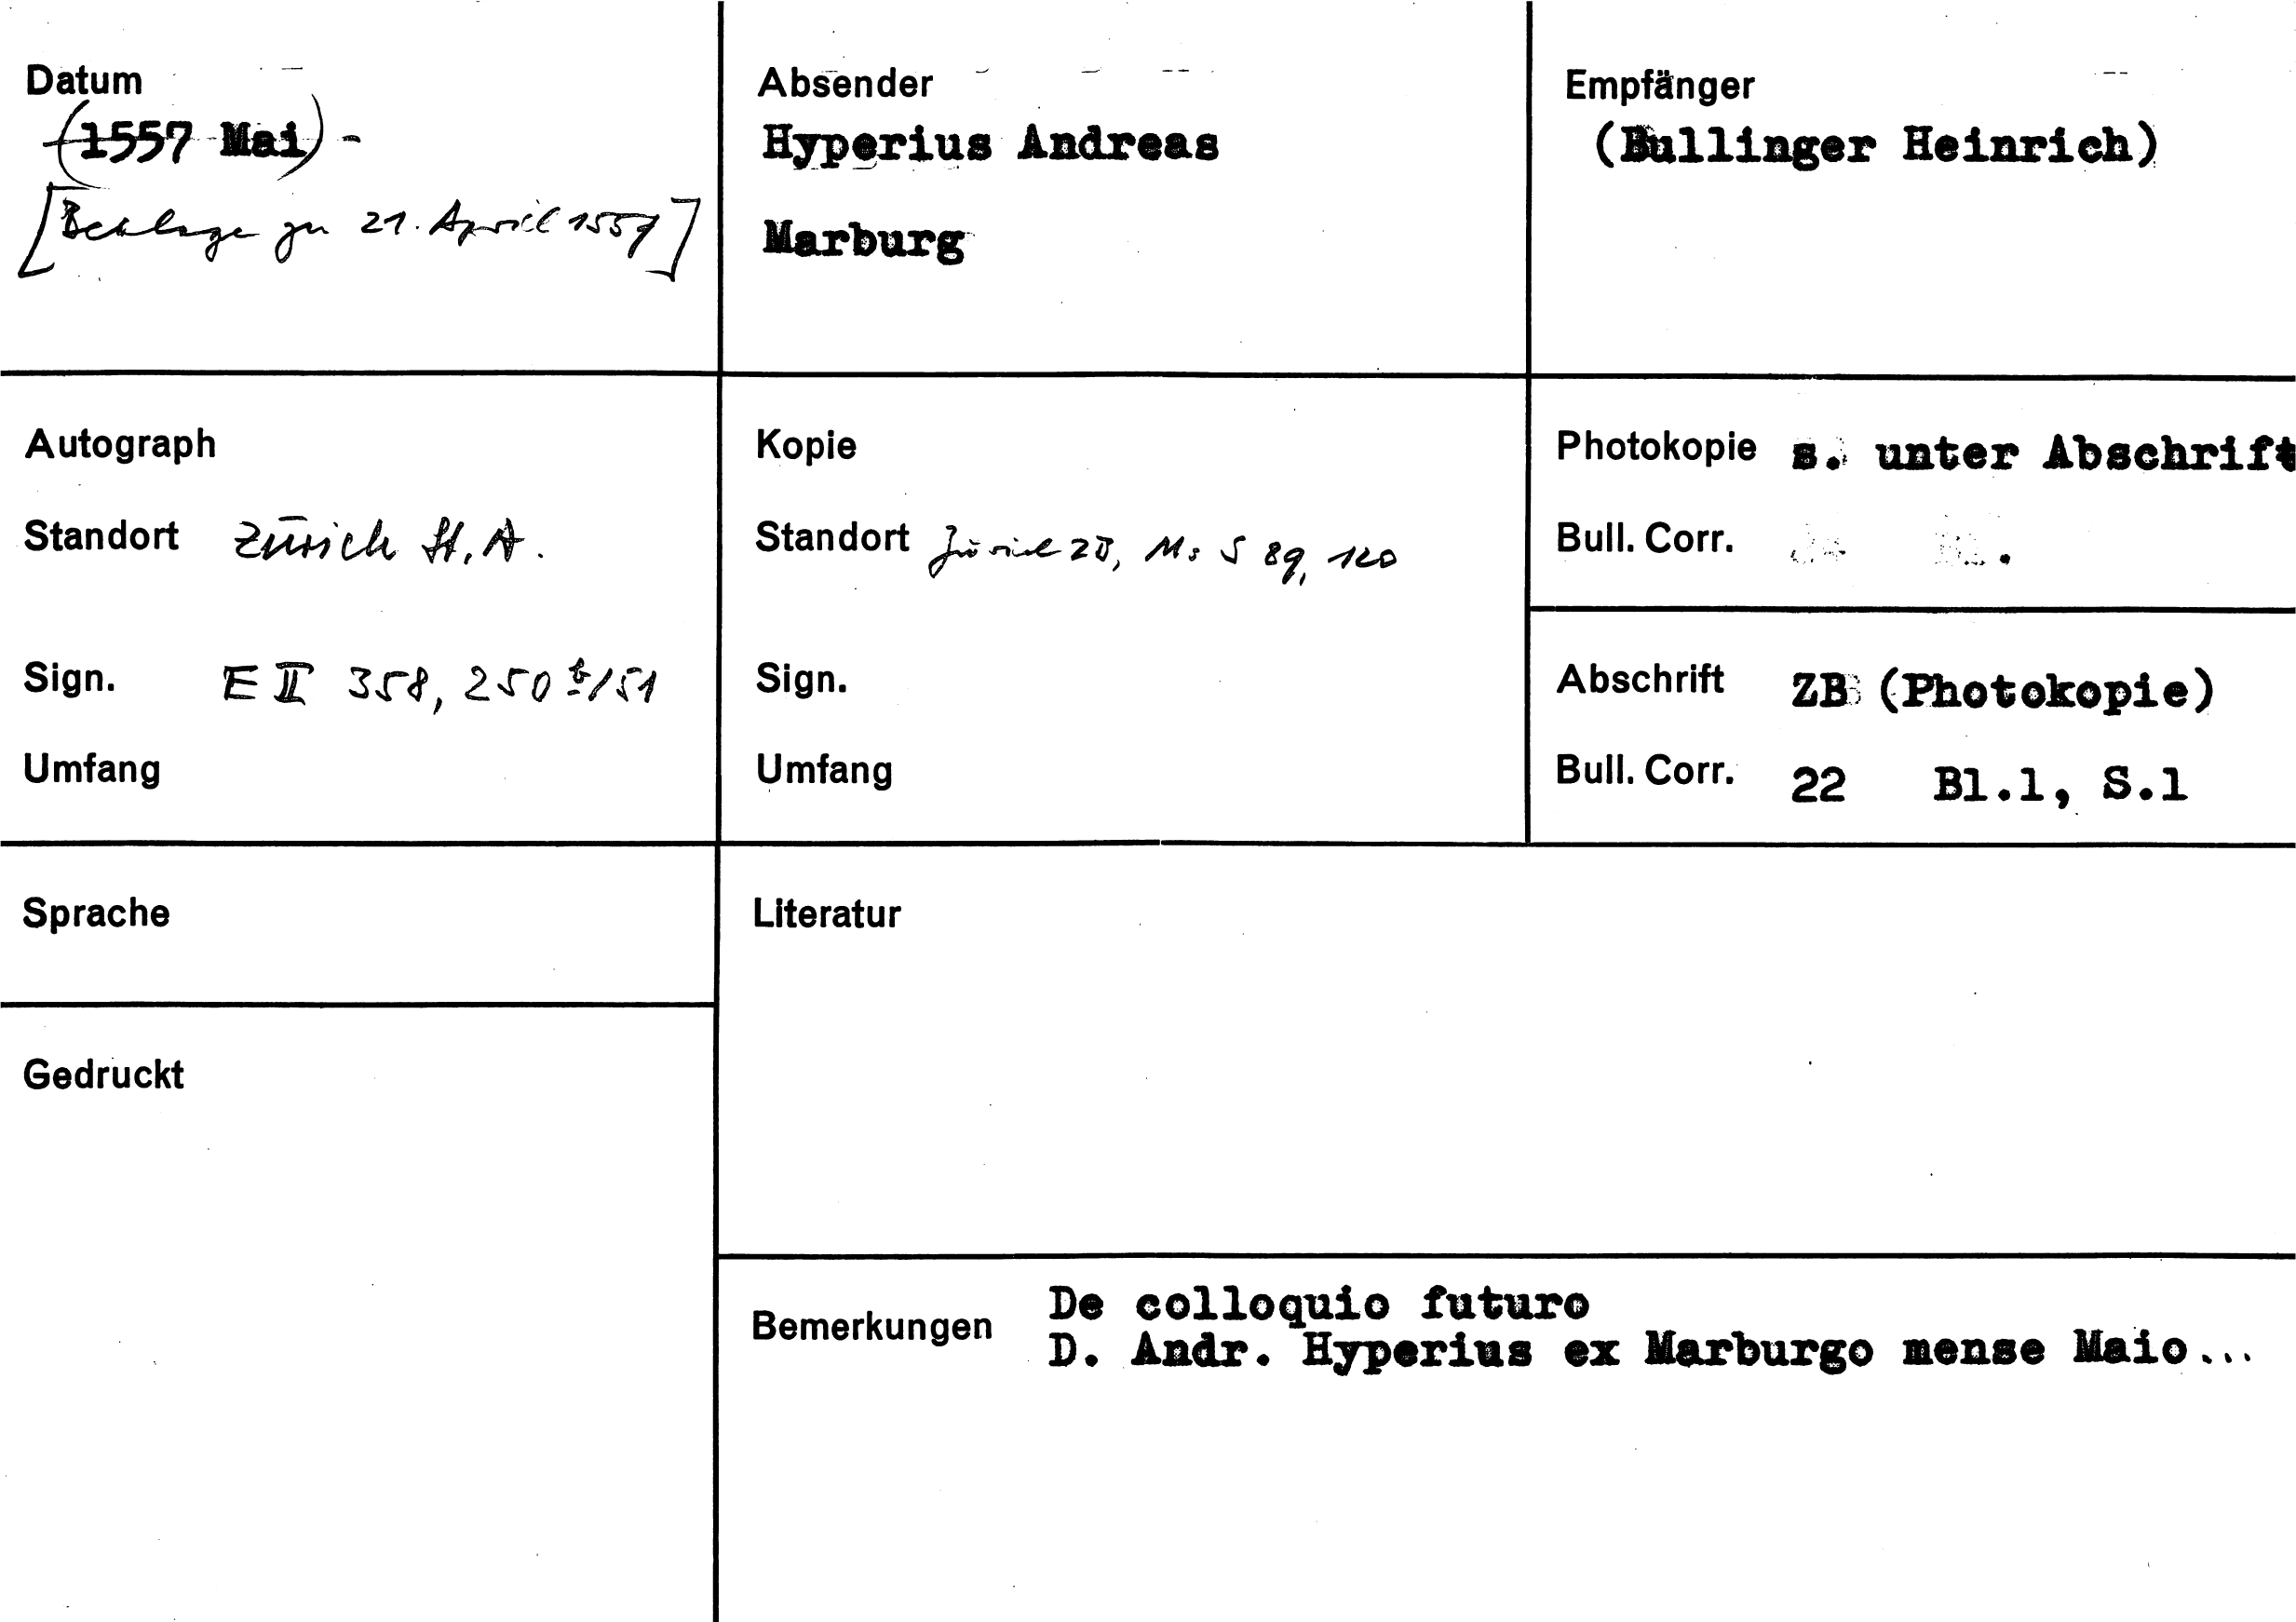 Datum
(1557 Mai) -
[Beilage zu 21. April 1557]
Absender
Hyperius Andreas
Marburg
Empfänger
(Bullinger Heinrich)
Autograph
Standort Zürich St. A.
Sign. E II 358, 250 b/51
Umfang
Kopie
Standort Zürich ZB, Ms S 89, 120
Sign.
Umfang
Photokopie s. unter Abschrift
Bull. Corr.
Abschrift ZB (Photokopie)
Bull. Corr. 22 Bl.1, S.1
Sprache
Literatur
Gedruckt
Bemerkungen De colloquio futuro
D. Andr. Hyperius ex Marburgo mense Maio...